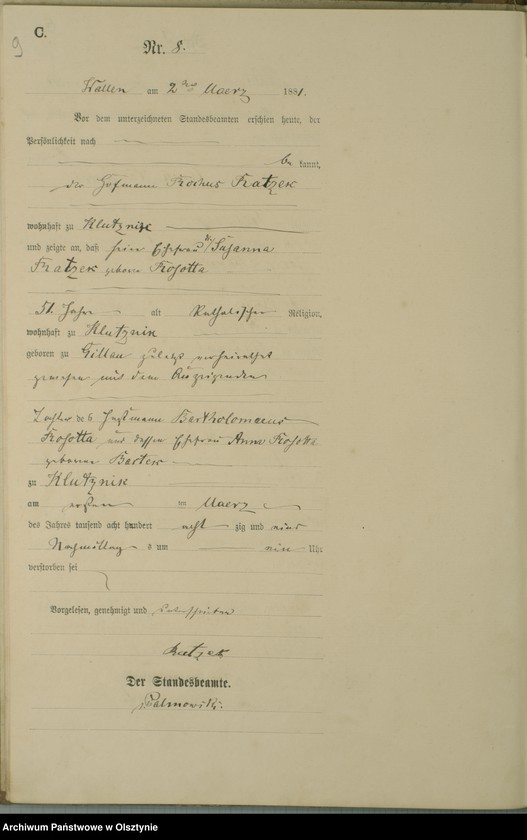 9
C.
Nr. 8.
Wallen am 2ten Maerz 1881.
Vor dem unterzeichneten Standesbeamten erschien heute, der
Persönlichkeit nach
be kannt,
der Hofmann Rochus Fratzek
wohnhaft zu Klutznik
und zeigte an, daß seine Ehefrau Susanna
Fratzek geborne Kosotta
51 Jahre alt Katholischer Religion,
wohnhaft zu Klutznik
geboren zu Gillau zuletzt verheirathet
gewesen mit dem Anzeigenden
Tochter des Instmann Bartholomaeus
Kosotta und dessen Ehefrau Anna Kosotta
geborene Bartek
zu Klutznik
am ersten im Maerz
des Jahres tausend acht hundert acht zig und eins
Nachmittag s um ein Uhr
verstorben sei
Vorgelesen, genehmigt und unterschrieben
Der Standesbeamte.
Archiwum Państwowe w Olsztynie